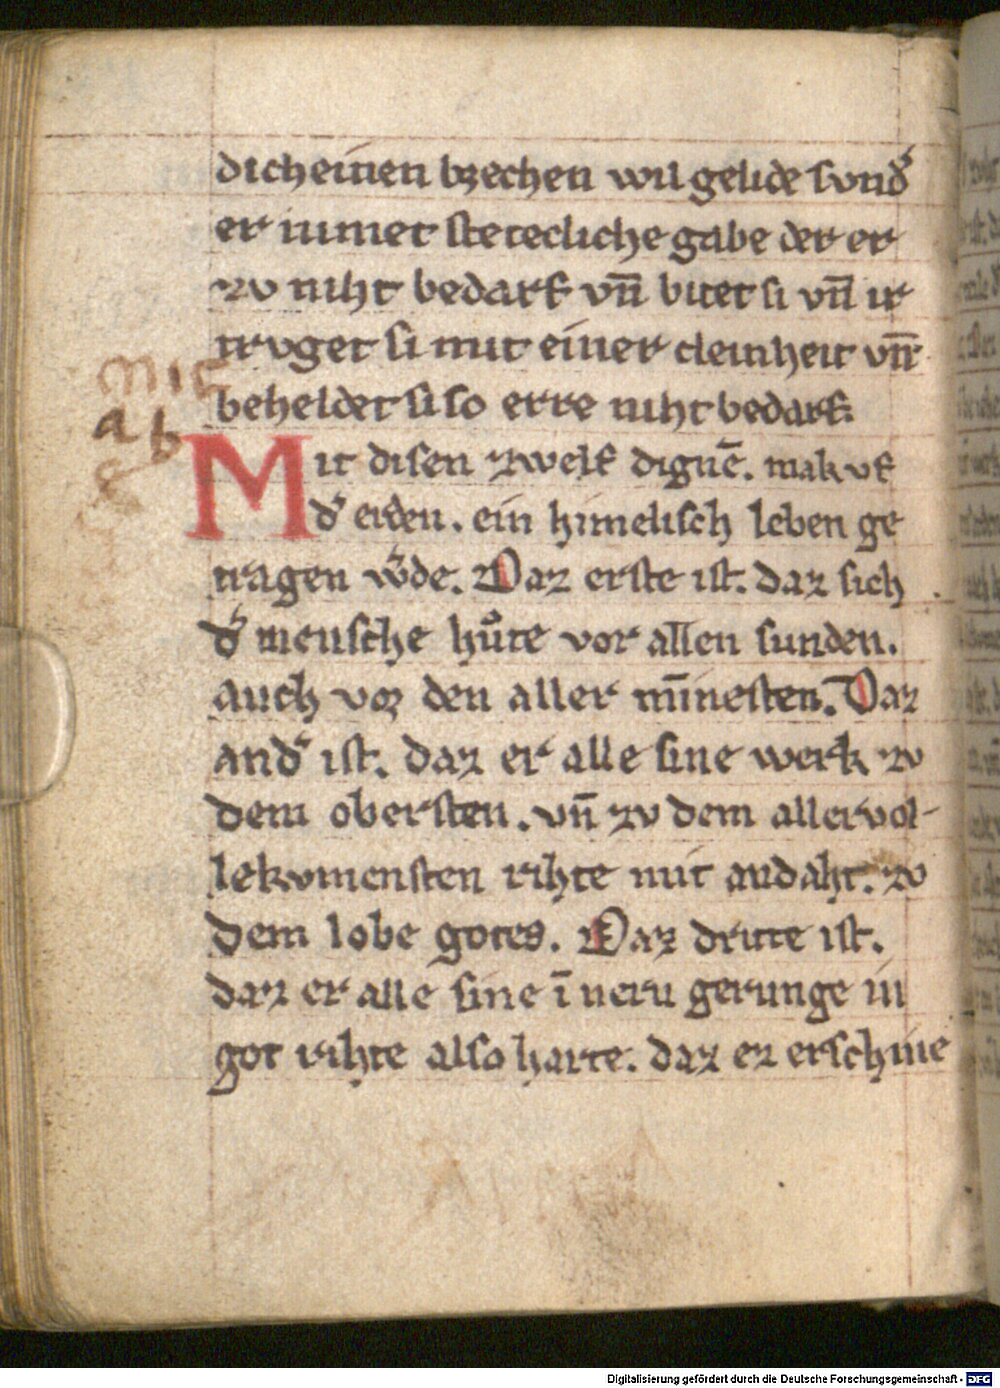 dicheinen brechen wil gelide sund᷑
er immer stetecliche gabe der er
zv niht bedarf vn̄ bitet si vn̄ ir
trvget si mit einer cleinheit vn̄
beheldet si so erre niht bedarf.
Mit disen zwelf dignē. mak vf
d᷑ erden. ein himelisch leben ge
tragen w᷑de. Daz erste ist. daz sich
d᷑ mensche hute vor allen sunden.
auch vor den aller mīnesten. Daz
and᷑ ist. daz er alle sine werk zv
dem obersten. vn̄ zv dem allervol-
lekvmensten rihte mit andaht. zv
dem lobe gotes. Daz dritte ist.
daz er alle sine īnern gerunge in
got rihte also harte. daz ez erschine
a b
Digitalisierung gefördert durch die Deutsche Forschungsgemeinschaft - DFG